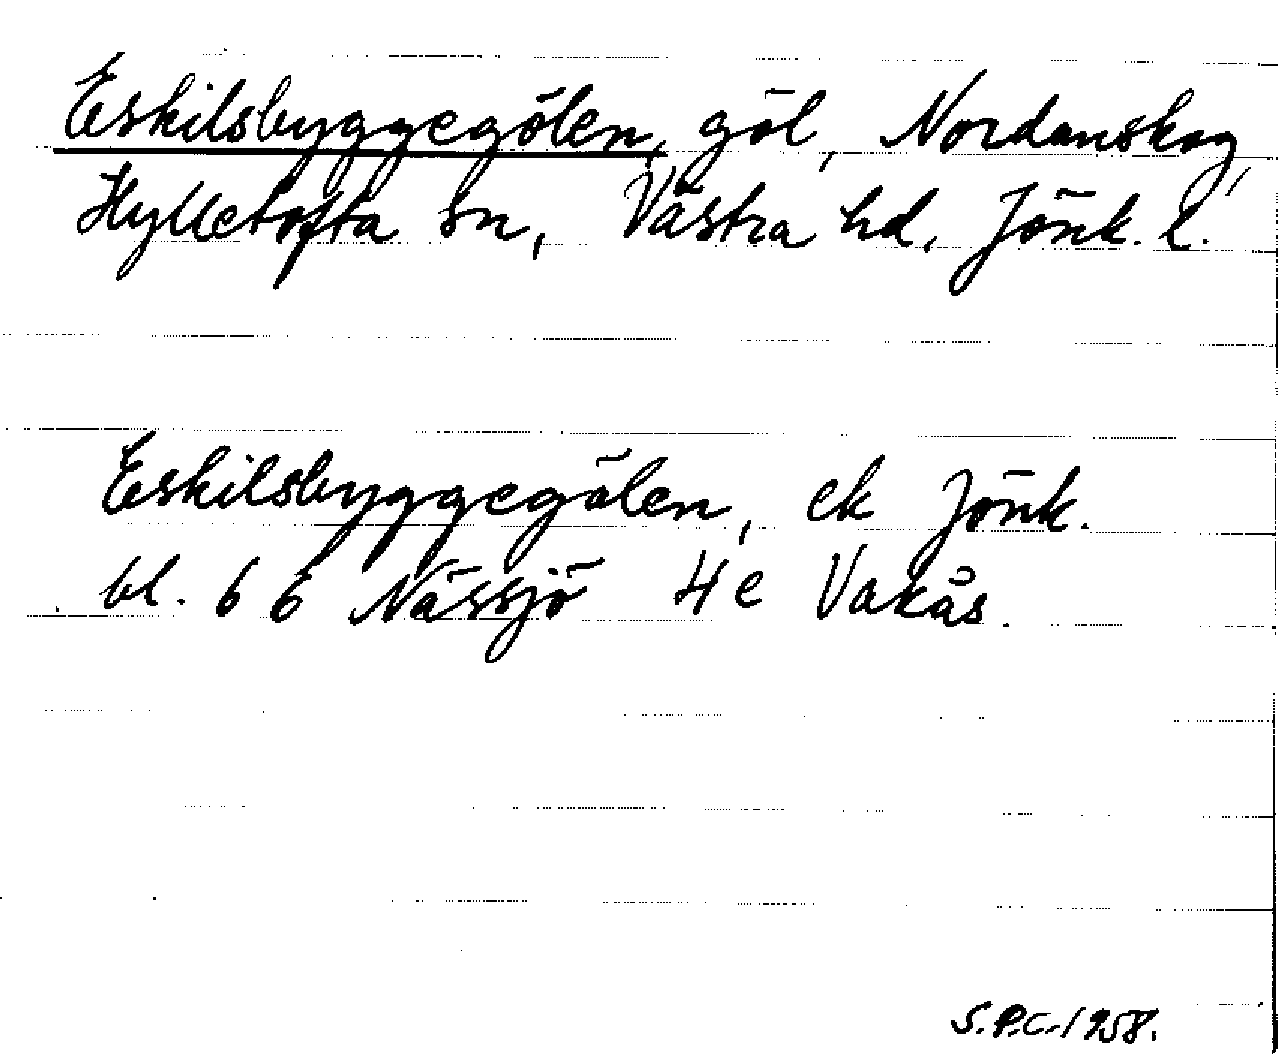 Eskilsbyggegölen, göl, Nordanskog,
Hylletofta sn, Västra hd, Jönk. l.
Eskilsbyggegölen, ek Jönk.
bl. 66 Nässjö 4e Vakås.
S.P.C. 1958.